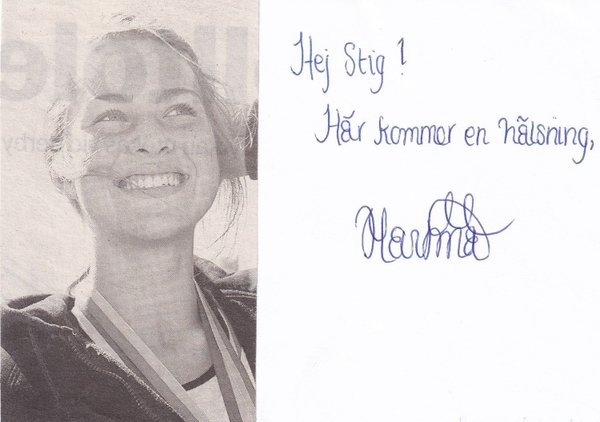 Hej Stig!
Här kommer en hälsning,